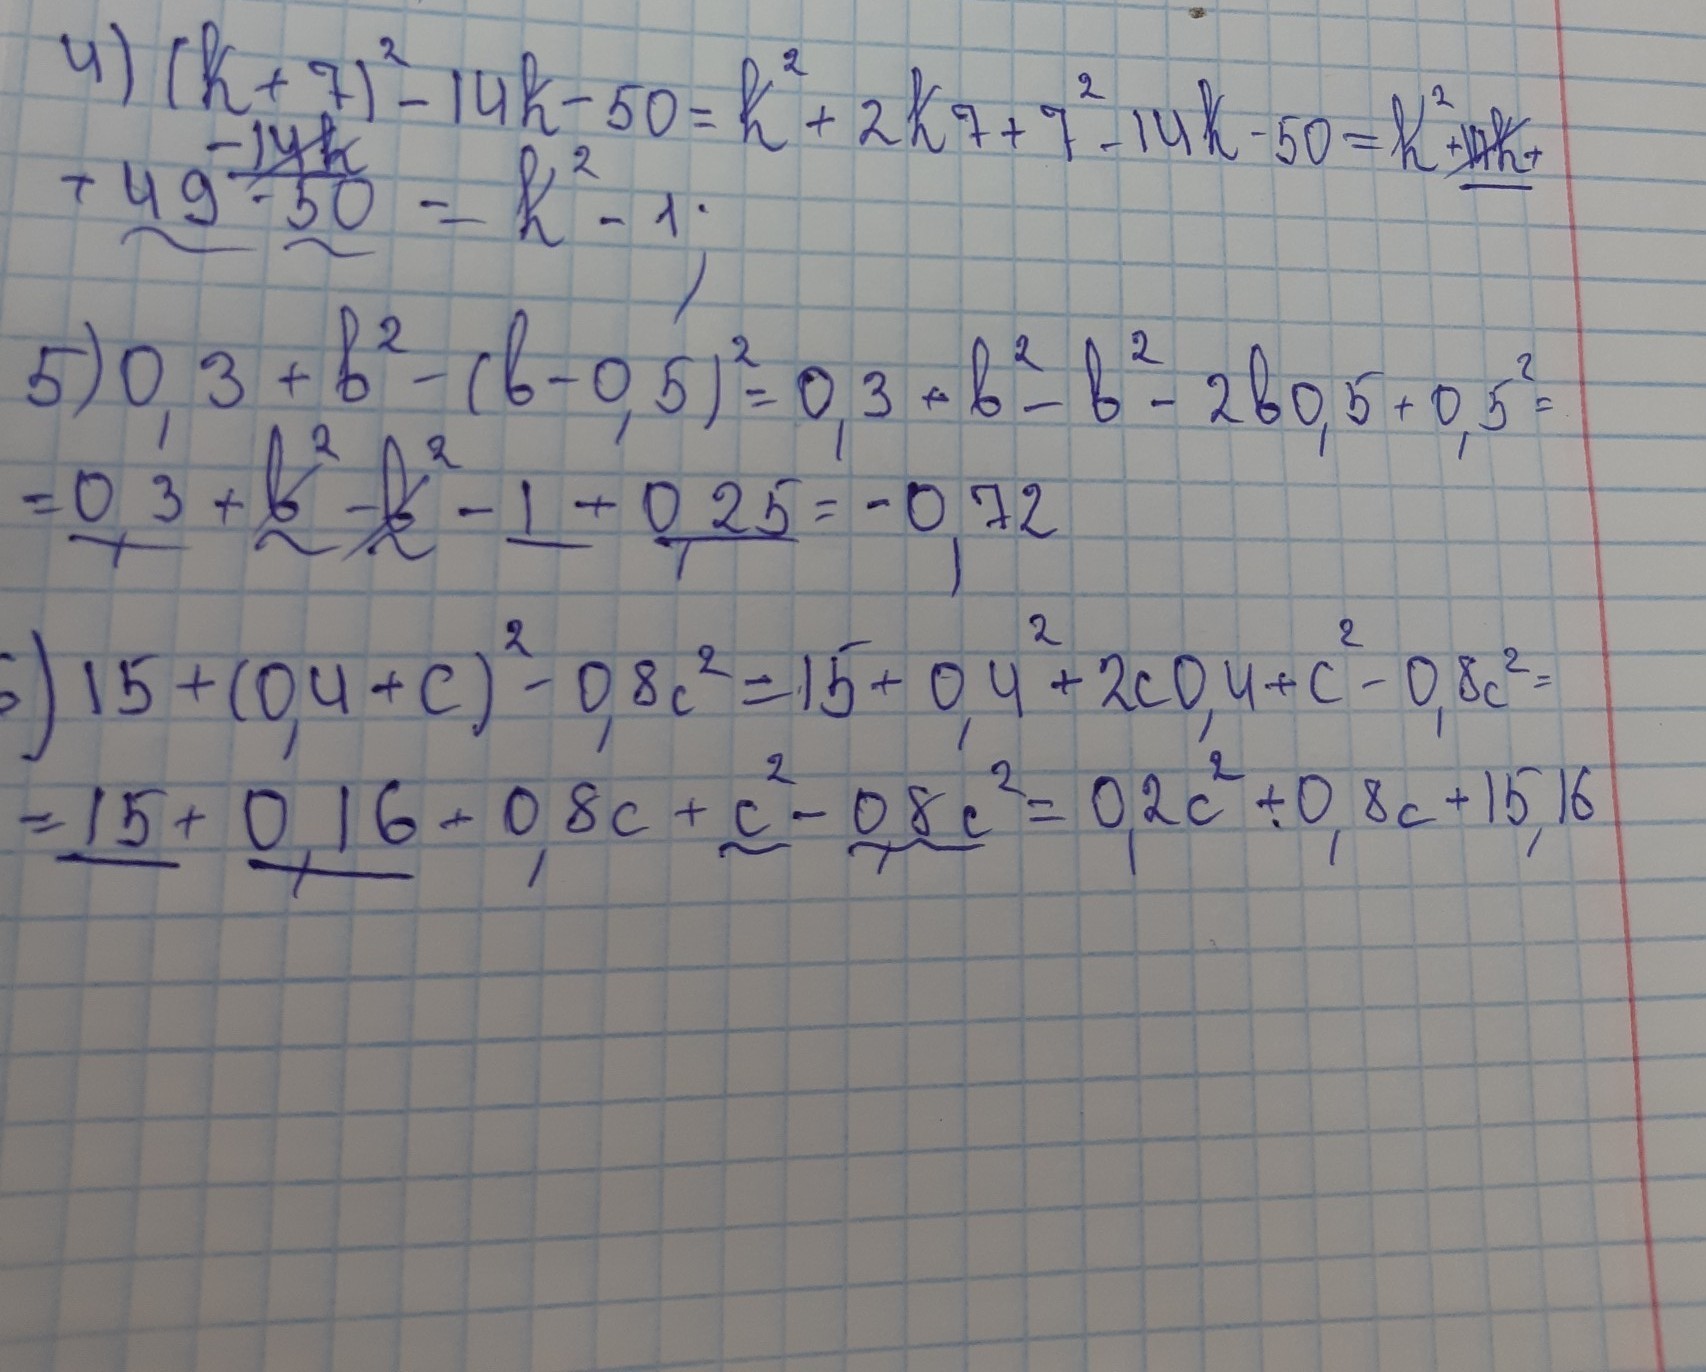 4) (k+7)² - 14k - 50 = k² + 2k7 + 7² - 14k - 50 = k² + 14k +
+ 49 - 14k - 50 = k² - 1;
5) 0,3 + b² - (b - 0,5)² = 0,3 + b² - b² - 2b0,5 + 0,5² =
= 0,3 + b² - b² - 1 + 0,25 = -0,72
6) 15 + (0,4 + c)² - 0,8c² = 15 + 0,4² + 2c0,4 + c² - 0,8c² =
= 15 + 0,16 + 0,8c + c² - 0,8c² = 0,2c² + 0,8c + 15,16